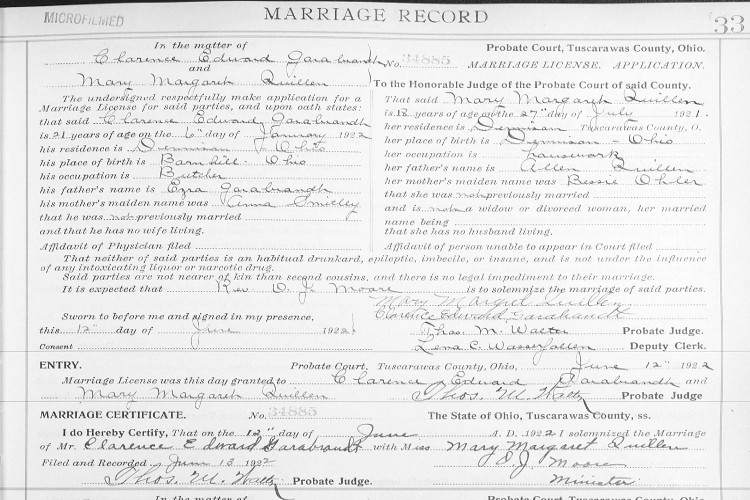 MICROFILMED
MARRIAGE RECORD
33
In the matter of
Clarence Edward Garabrandt
and
Mary Margaret Quillen
No. 34885
Probate Court, Tuscarawas County, Ohio.
MARRIAGE LICENSE. APPLICATION.
The undersigned respectfully make application for a
Marriage License for said parties, and upon oath states:
that said Clarence Edward Garabrandt
is 21 years of age on the 6" day of January 1922
his residence is Dennison - Ohio
his place of birth is Barnhill - Ohio
his occupation is Butcher
his father's name is Ezra Garabrandt
his mother's maiden name was Anna Smickey
that he was not previously married
and that he has no wife living.
Affidavit of Physician filed
To the Honorable Judge of the Probate Court of said County.
That said Mary Margaret Quillen
is 18 years of age on the 27" day of July 1921.
her residence is Dennison Tuscarawas County, O.
her place of birth is Dennison - Ohio
her occupation is housework
her father's name is Allen Quillen
her mother's maiden name was Bessie Ohler
that she was not previously married
and is not a widow or divorced woman, her married
name being
that she has no husband living.
Affidavit of person unable to appear in Court filed
That neither of said parties is an habitual drunkard, epileptic, imbecile, or insane, and is not under the influence
of any intoxicating liquor or narcotic drug.
Said parties are not nearer of kin than second cousins, and there is no legal impediment to their marriage.
It is expected that Rev. O. J. Moore is to solemnize the marriage of said parties.
Mary Margret Quillen
Clarence Edward Garabrandt
Sworn to before me and signed in my presence,
this 12" day of June 1922
Thos. M. Walter Probate Judge.
Consent
Lena C. Wasserfallen Deputy Clerk.
ENTRY.
Probate Court, Tuscarawas County, Ohio, June 12" 1922
Marriage License was this day granted to Clarence Edward Garabrandt and
Mary Margaret Quillen
MARRIAGE CERTIFICATE. No. 34885
The State of Ohio, Tuscarawas County, ss.
I do Hereby Certify, That on the 12" day of June A. D. 1922 I solemnized the Marriage
of Mr. Clarence Edward Garabrandt with Miss Mary Margaret Quillen
Filed and Recorded June 13 1922
O. J. Moore
Probate Judge.
Minister
In the matter of
Probate Court, Tuscarawas County, Ohio.